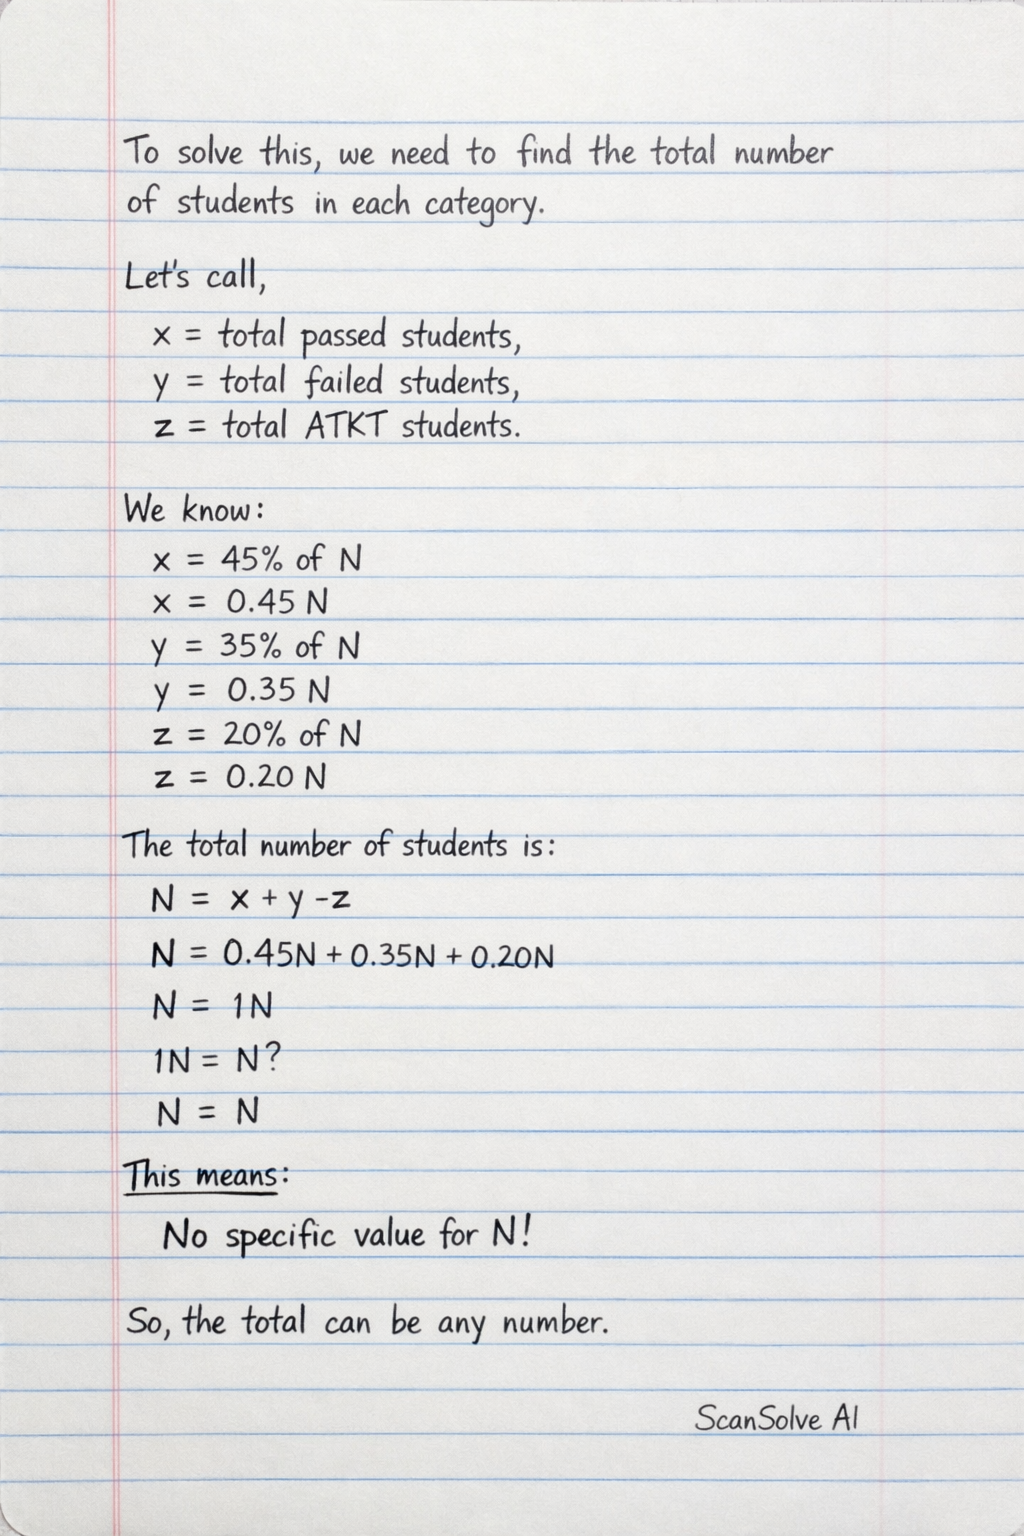 To solve this, we need to find the total number
of students in each category.
Let's call,
x = total passed students,
y = total failed students,
z = total ATKT students.
We know:
x = 45% of N
x = 0.45 N
y = 35% of N
y = 0.35 N
z = 20% of N
z = 0.20 N
The total number of students is:
N = x + y - z
N = 0.45N + 0.35N + 0.20N
N = 1N
1N = N?
N = N
This means:
No specific value for N!
So, the total can be any number.
ScanSolve AI